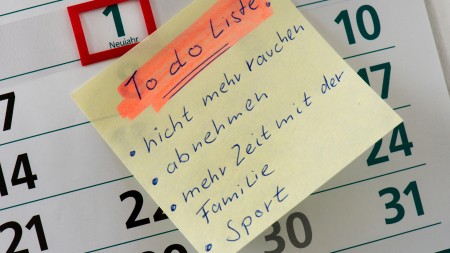 1
Neujahr
To do Liste:
• nicht mehr rauchen
• abnehmen
• mehr Zeit mit der
Familie
• Sport
3
10
7
14
24
21
22
30
31